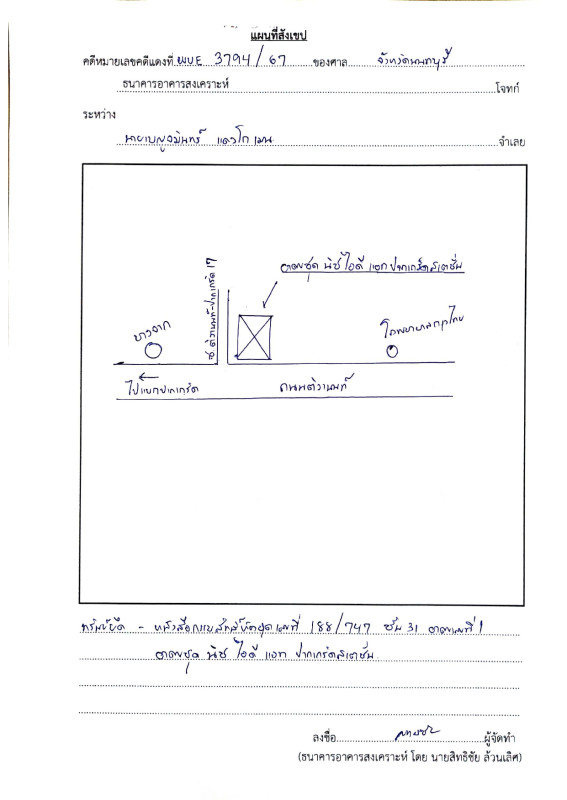 แผนที่สังเขป
คดีหมายเลขคดีแดงที่ ผบE 3794/67 ของศาล จังหวัดนนทบุรี
ธนาคารอาคารสงเคราะห์ โจทก์
ระหว่าง
นายเบญจมินทร์ จำเลย
อาคารชุด นิช ไอดี แอท ปากเกร็ดสเตชั่น
ซ.ติวานนท์-ปากเกร็ด 17
บางจาก
โรงพยาบาล
ไปแยกปากเกร็ด
ถนนติวานนท์
ทรัพย์ยึด - หนังสือกรรมสิทธิ์ห้องชุดเลขที่ 188/747 ชั้น 31 อาคารเลขที่ 1
อาคารชุด นิช ไอดี แอท ปากเกร็ดสเตชั่น
ลงชื่อ ผู้จัดทำ
(ธนาคารอาคารสงเคราะห์ โดย นายสิทธิชัย ล้วนเลิศ)